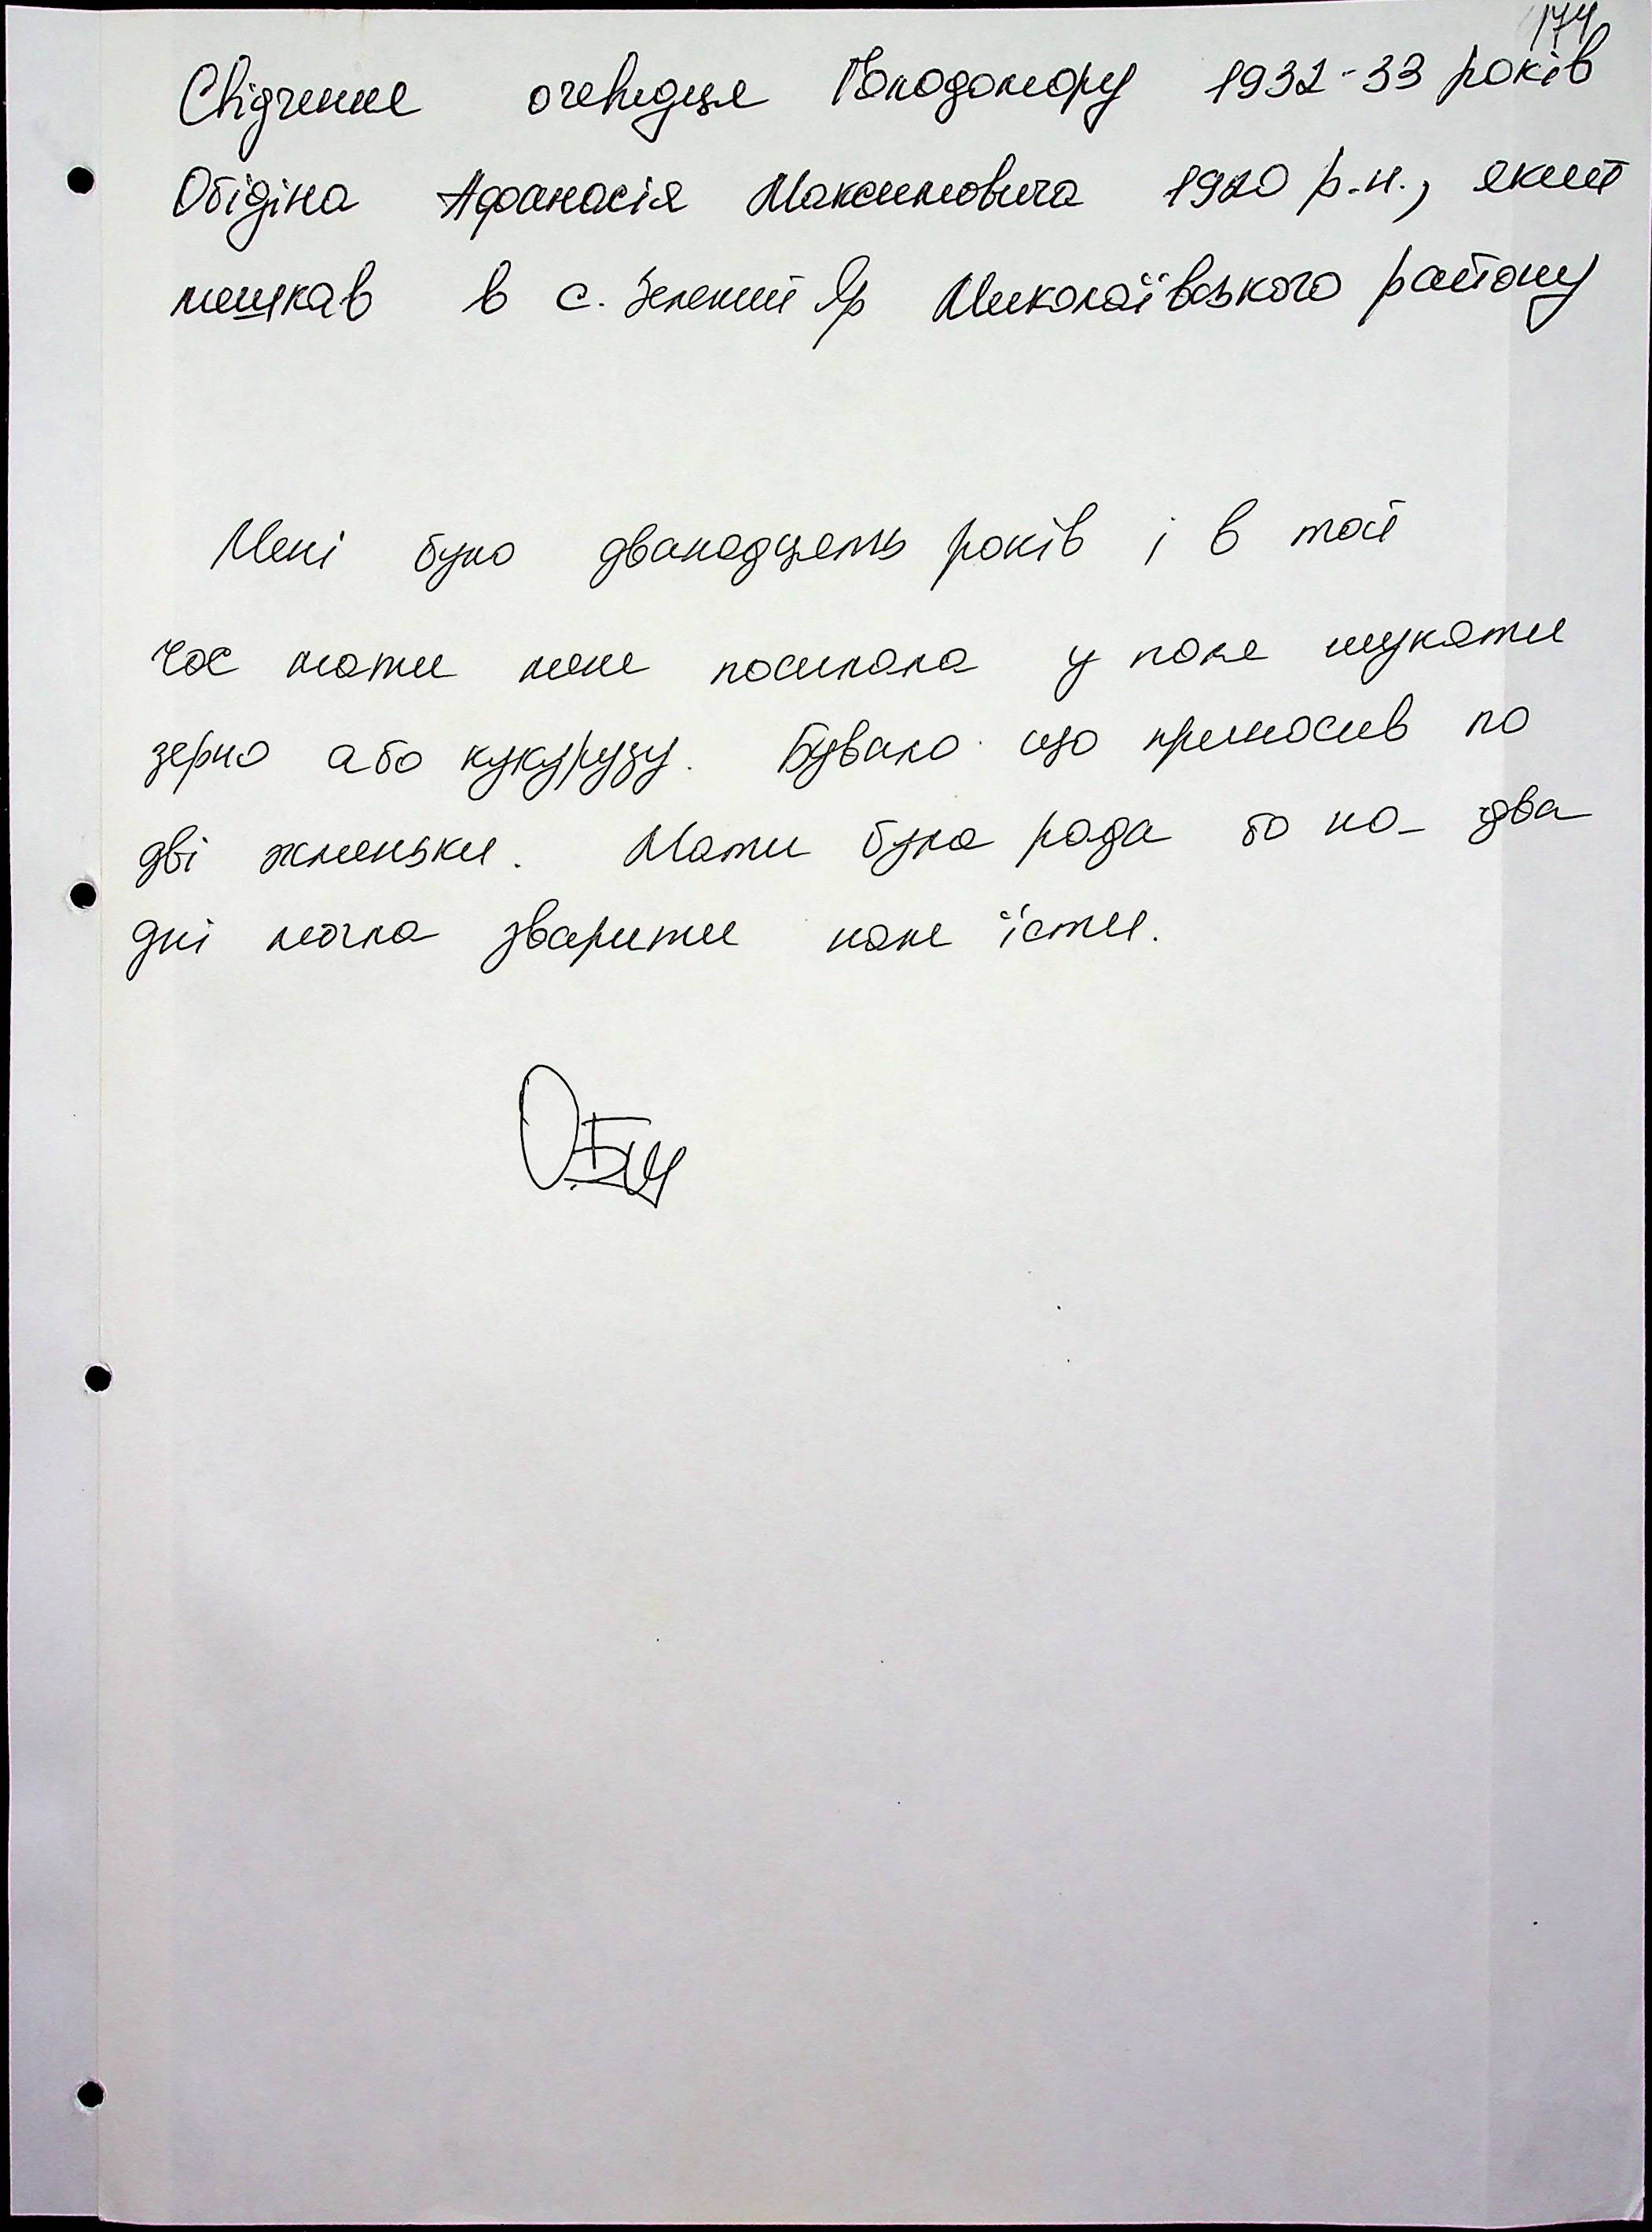 174
Свідчення очевидця Голодомору 1932-33 років
Обідіна Афанасія Максимовича 1920 р.н., який
мешкав в с. Зелений Яр Миколаївського району
Мені було дванадцять років і в той
час мати мене посилала у поле шукати
зерно або кукурузу. Бувало що приносив по
дві жменьки. Мати була рада бо на два
дні могла зварити нам їсти.